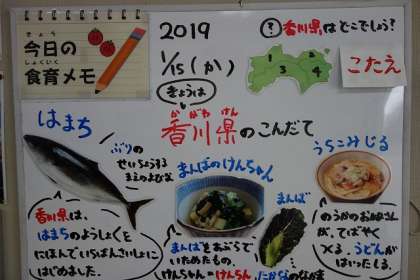 きょう
今日の
しょくいく
食育メモ
2019
1/15(か)
? 香川県はどこでしょう?
1
2
3
4
こたえ
きょうは
かがわけん
香川県のこんだて
はまち
ぶりの
せいちょうする
まえのよびな
香川県は、
はまちのようしょくを
にほんでいちばんさいしょに
はじめました。
まんばのけんちゃん
まんばをあぶらで
いためたもの。
けんちゃん=けんちん
まんば
たかなのなかま
うちこみじる
のうかのおよめさん
が、てばやく
つくる、うどんが
はいったしる。